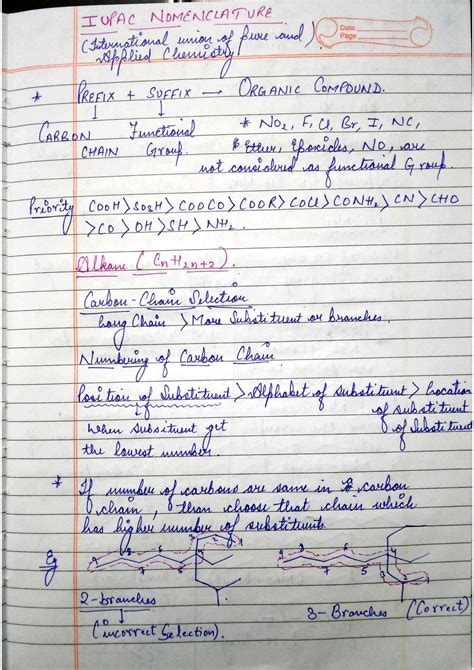 IUPAC NOMENCLATURE
(International union of pure and
Applied Chemistry)
Date
Page
* PREFIX + SUFFIX → ORGANIC COMPOUND.
↓ ↓
CARBON Functional * NO2, F, Cl, Br, I, NC,
CHAIN Group. Ether, Epoxides, NO, are
not considered as functional Group.
Priority COOH > SO3H > COOCO > COOR > COCl > CONH2 > CN > CHO
> CO > OH > SH > NH2.
Alkane (CnH2n+2).
Carbon-Chain Selection
Long Chain > More Substituent or branches.
Numbering of Carbon Chain
Position of Substituent > Alphabet of substituent > Location
of substituent
of Substituent
when subsituent get
the lowest number.
* If number of carbons are same in carbon
chain, than choose that chain which
has higher number of substituents.
Eg
9 8 7 6 5 4 3 2 1
9 8 7 6 5 4 3 2 1
2-branches
3-Branches (Correct)
↓
(incorrect Selection).